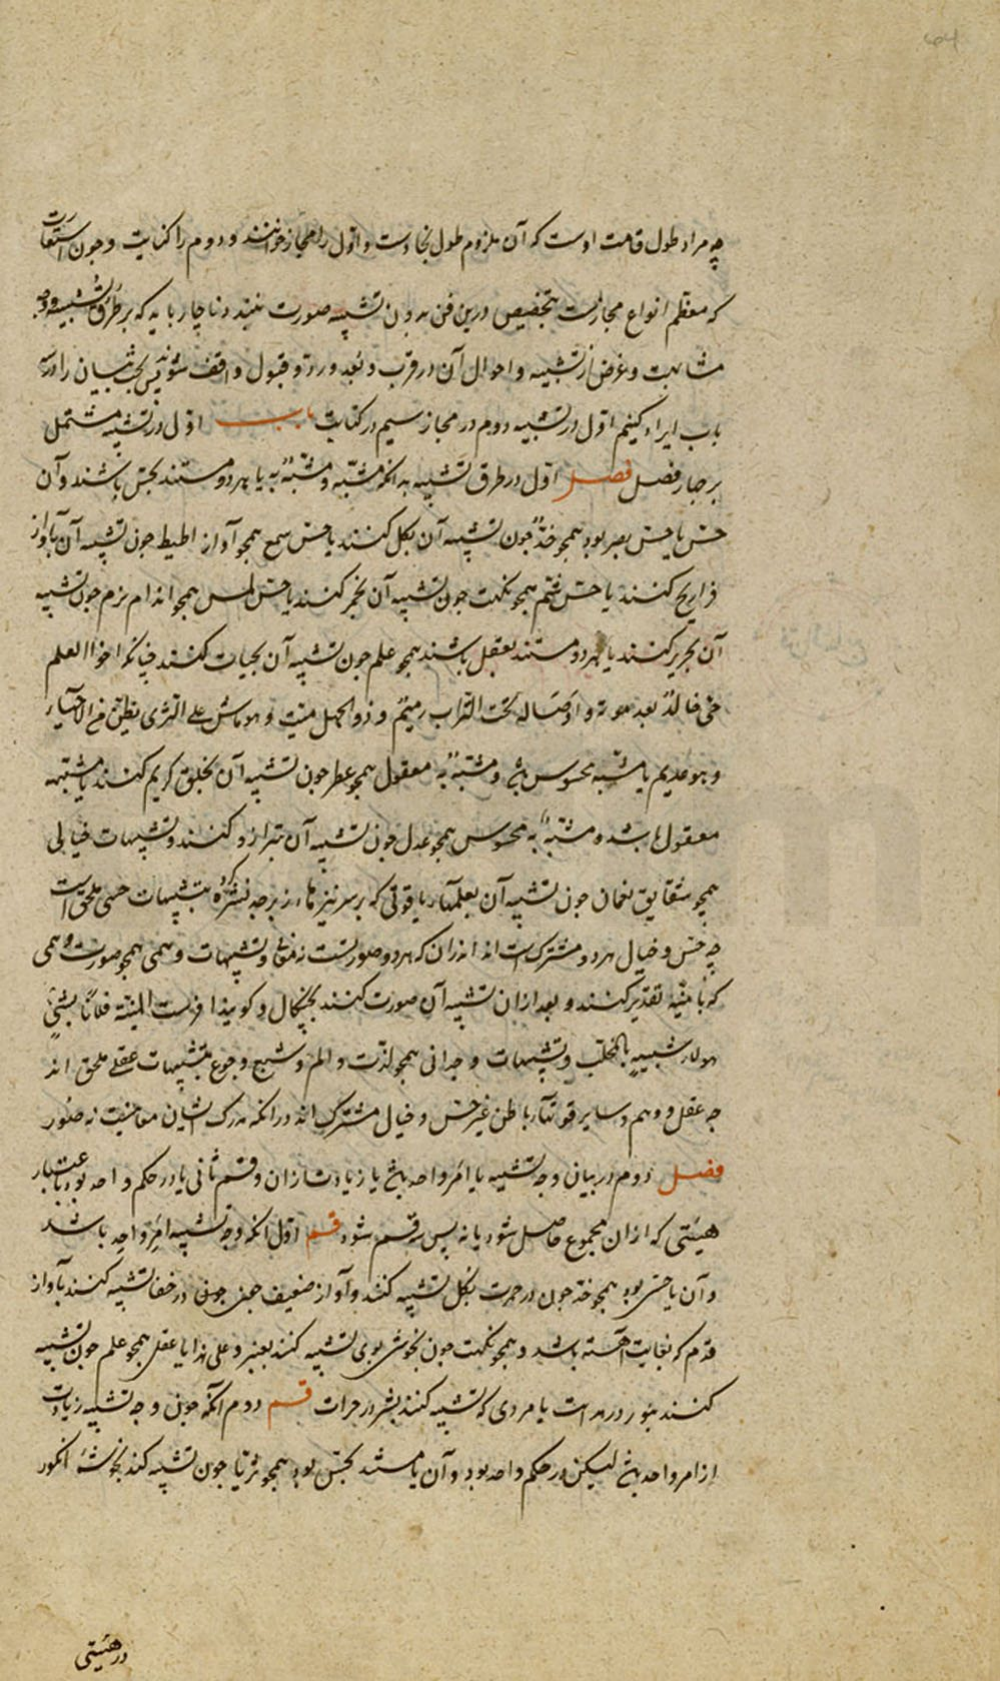 چه مراد طول قامت اوست که آن ملزوم طول نجادست و اول را مجاز خوانند و دوم را کنایت و چون استعارت
که معظم انواع مجازست بتخصیص درین فن بدون تشبیه صورت نبندد ناچار باید که بر طرق تشبیه و وجه
مشابهت و غرض از تشبیه و احوال آن در قرب و بعد و رد و قبول واقف شوند پس بحث بیان را در سه
باب ایراد کنیم اول در تشبیه دوم در مجاز سیم در کنایت باب اول در تشبیه مشتمل
بر چهار فصل فصل اول در طرق تشبیه بدانکه مشبه و مشبه به یا هر دو مستند بحس باشند و آن
حس یا حس بصر بود همچو خد چون تشبیه آن بکل کنند یا حس سمع همچو آواز اطیط چون تشبیه آن بآواز
فراریج کنند یا حس شم همچو نکهت چون تشبیه آن بخمر کنند یا حس لمس همچو اندام نرم چون تشبیه
آن بحریر کنند یا هر دو مستند بعقل باشند همچو علم چون تشبیه آن بحیات کنند چنانکه اخو العلم
حی خالد بعد موته و اوصاله تحت التراب رمیم و ذو الجهل میت و هو ماش علی الثری یظن من الاحیاء
و هو عدیم یا مشبه محسوس باشد و مشبه به معقول همچو عطر چون تشبیه آن بخلق کریم کنند یا مشبه
معقول باشد و مشبه به محسوس همچو عدل چون تشبیه آن بترازو کنند و تشبیهات خیالی
همچو شقایق نعمان چون تشبیه آن بعلمهاء یاقوتی که بر سر نیزهاء زبرجد نشر کرده بتشبیهات حسی ملحق است
چه حس و خیال هر دو مشترک اند اندران که هر دو صورتست نه معانی و تشبیهات وهمی همچو صورت وهمی
که با منیه تقدیر کنند و بعد ازان تشبیه آن صورت کنند بچنکال و کویند افرست المنیة فلانا بشئ
هو له شبیه بالمخلب و تشبیهات وجدانی همچو لذت و الم و شبع و جوع بتشبیهات عقلی ملحق اند
چه عقل و وهم و سایر قوتهاء باطن غیر حس و خیال مشترک اند در انکه مدرک ایشان معانیست نه صور
فصل دوم در بیان وجه تشبیه یا امر واحد باشد یا زیادت ازان و قسم ثانی یا در حکم واحد بود باعتبار
هیئتی که ازان مجموع حاصل شود یا نه پس سه قسم شود قسم اول انکه وجه تشبیه امر واحد باشد
و آن یا حسی بود همچو خد چون در حمرت بکل تشبیه کنند و آواز ضعیف چون در خفا تشبیه کنند بآواز
قدم که بغایت آهسته باشد و همچو نکهت چون بخوش بوی تشبیه کنند بعنبر و علی هذا یا عقلی همچو علم چون تشبیه
کنند بنور در هدایت یا مردی که تشبیه کنند بشیر در جرات قسم دوم انکه چون وجه تشبیه زیادت
از امر واحد باشد لیکن در حکم واحد بود و آن یا مستند بحس بود همچو ثریا چون تشبیه کند بخوشهٔ انکور
در هیئتی